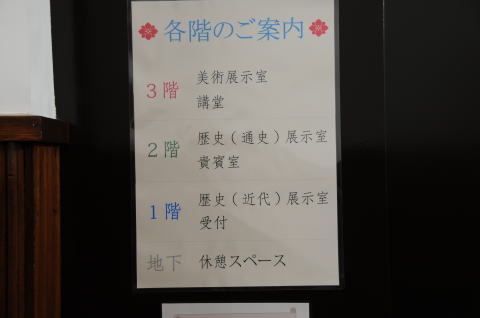 各階のご案内
3階 美術展示室
講堂
2階 歴史(通史)展示室
貴賓室
1階 歴史(近代)展示室
受付
地下 休憩スペース